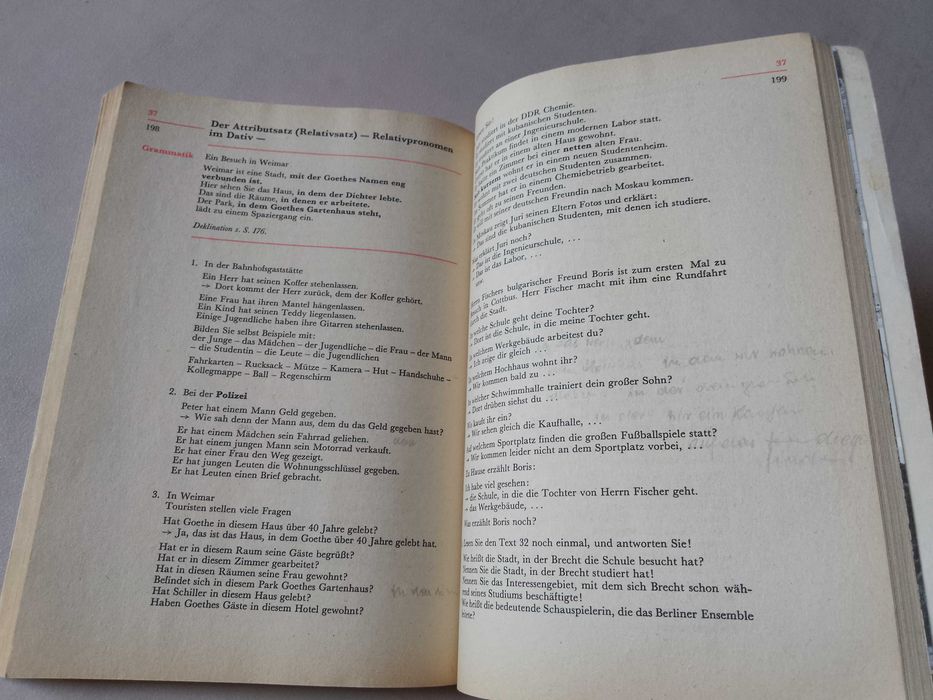 37
198
Der Attributsatz (Relativsatz) — Relativpronomen
im Dativ —
Grammatik
Ein Besuch in Weimar
Weimar ist eine Stadt, mit der Goethes Namen eng
verbunden ist.
Hier sehen Sie das Haus, in dem der Dichter lebte.
Das sind die Räume, in denen er arbeitete.
Der Park, in dem Goethes Gartenhaus steht,
lädt zu einem Spaziergang ein.
Deklination s. S. 176.
1. In der Bahnhofsgaststätte
Ein Herr hat seinen Koffer stehenlassen.
→ Dort kommt der Herr zurück, dem der Koffer gehört.
Eine Frau hat ihren Mantel hängenlassen.
Ein Kind hat seinen Teddy liegenlassen.
Einige Jugendliche haben ihre Gitarren stehenlassen.
Bilden Sie selbst Beispiele mit:
der Junge – das Mädchen – der Jugendliche – die Frau – der Mann
– die Studentin – die Leute – die Jugendlichen
Fahrkarten – Rucksack – Mütze – Kamera – Hut – Handschuhe –
Kollegmappe – Ball – Regenschirm
2. Bei der Polizei
Peter hat einem Mann Geld gegeben.
→ Wie sah denn der Mann aus, dem du das Geld gegeben hast?
Er hat einem Mädchen sein Fahrrad geliehen.
Er hat einem jungen Mann sein Motorrad verkauft.
Er hat einer Frau den Weg gezeigt.
Er hat jungen Leuten die Wohnungsschlüssel gegeben.
Er hat Leuten einen Brief gebracht.
3. In Weimar
Touristen stellen viele Fragen
Hat Goethe in diesem Haus über 40 Jahre gelebt?
→ Ja, das ist das Haus, in dem Goethe über 40 Jahre gelebt hat.
Hat er in diesem Raum seine Gäste begrüßt?
Hat er in diesem Zimmer gearbeitet?
Hat in diesen Räumen seine Frau gewohnt?
Befindet sich in diesem Park Goethes Gartenhaus?
Hat Schiller in diesem Haus gelebt?
Haben Goethes Gäste in diesem Hotel gewohnt?
37
199
in der DDR Chemie.
mit kubanischen Studenten.
an einer Ingenieurschule.
findet in einem modernen Labor statt.
hat er in einem alten Haus gewohnt.
ein Zimmer bei einer netten alten Frau.
wohnt er in einem neuen Studentenheim.
mit zwei deutschen Studenten zusammen.
hat er in einem Chemiebetrieb gearbeitet.
oft zu seinen Freunden.
mit seiner deutschen Freundin nach Moskau kommen.
Moskau zeigt Juri seinen Eltern Fotos und erklärt:
Das sind die kubanischen Studenten, mit denen ich studiere.
erklärt Juri noch?
Das ist die Ingenieurschule, . . .
Das ist das Labor, . . .
Herrn Fischers bulgarischer Freund Boris ist zum ersten Mal zu
Besuch in Cottbus. Herr Fischer macht mit ihm eine Rundfahrt
durch die Stadt.
In welche Schule geht deine Tochter?
→ Dort ist die Schule, in die meine Tochter geht.
In welchem Werkgebäude arbeitest du?
→ Ich zeige dir gleich . . .
In welchem Hochhaus wohnt ihr?
→ Wir kommen bald zu . . .
In welcher Schwimmhalle trainiert dein großer Sohn?
→ Dort drüben siehst du . . .
Wo kauft ihr ein?
→ Wir sehen gleich die Kaufhalle, . . .
Auf welchem Sportplatz finden die großen Fußballspiele statt?
→ Wir kommen leider nicht an dem Sportplatz vorbei, . . .
Zu Hause erzählt Boris:
Ich habe viel gesehen:
→ die Schule, in die die Tochter von Herrn Fischer geht.
→ das Werkgebäude, . . .
Was erzählt Boris noch?
Lesen Sie den Text 32 noch einmal, und antworten Sie!
Wie heißt die Stadt, in der Brecht die Schule besucht hat?
Nennen Sie die Stadt, in der Brecht studiert hat!
Nennen Sie das Interessengebiet, mit dem sich Brecht schon wäh-
rend seines Studiums beschäftigte!
Wie heißt die bedeutende Schauspielerin, die das Berliner Ensemble
leitete?